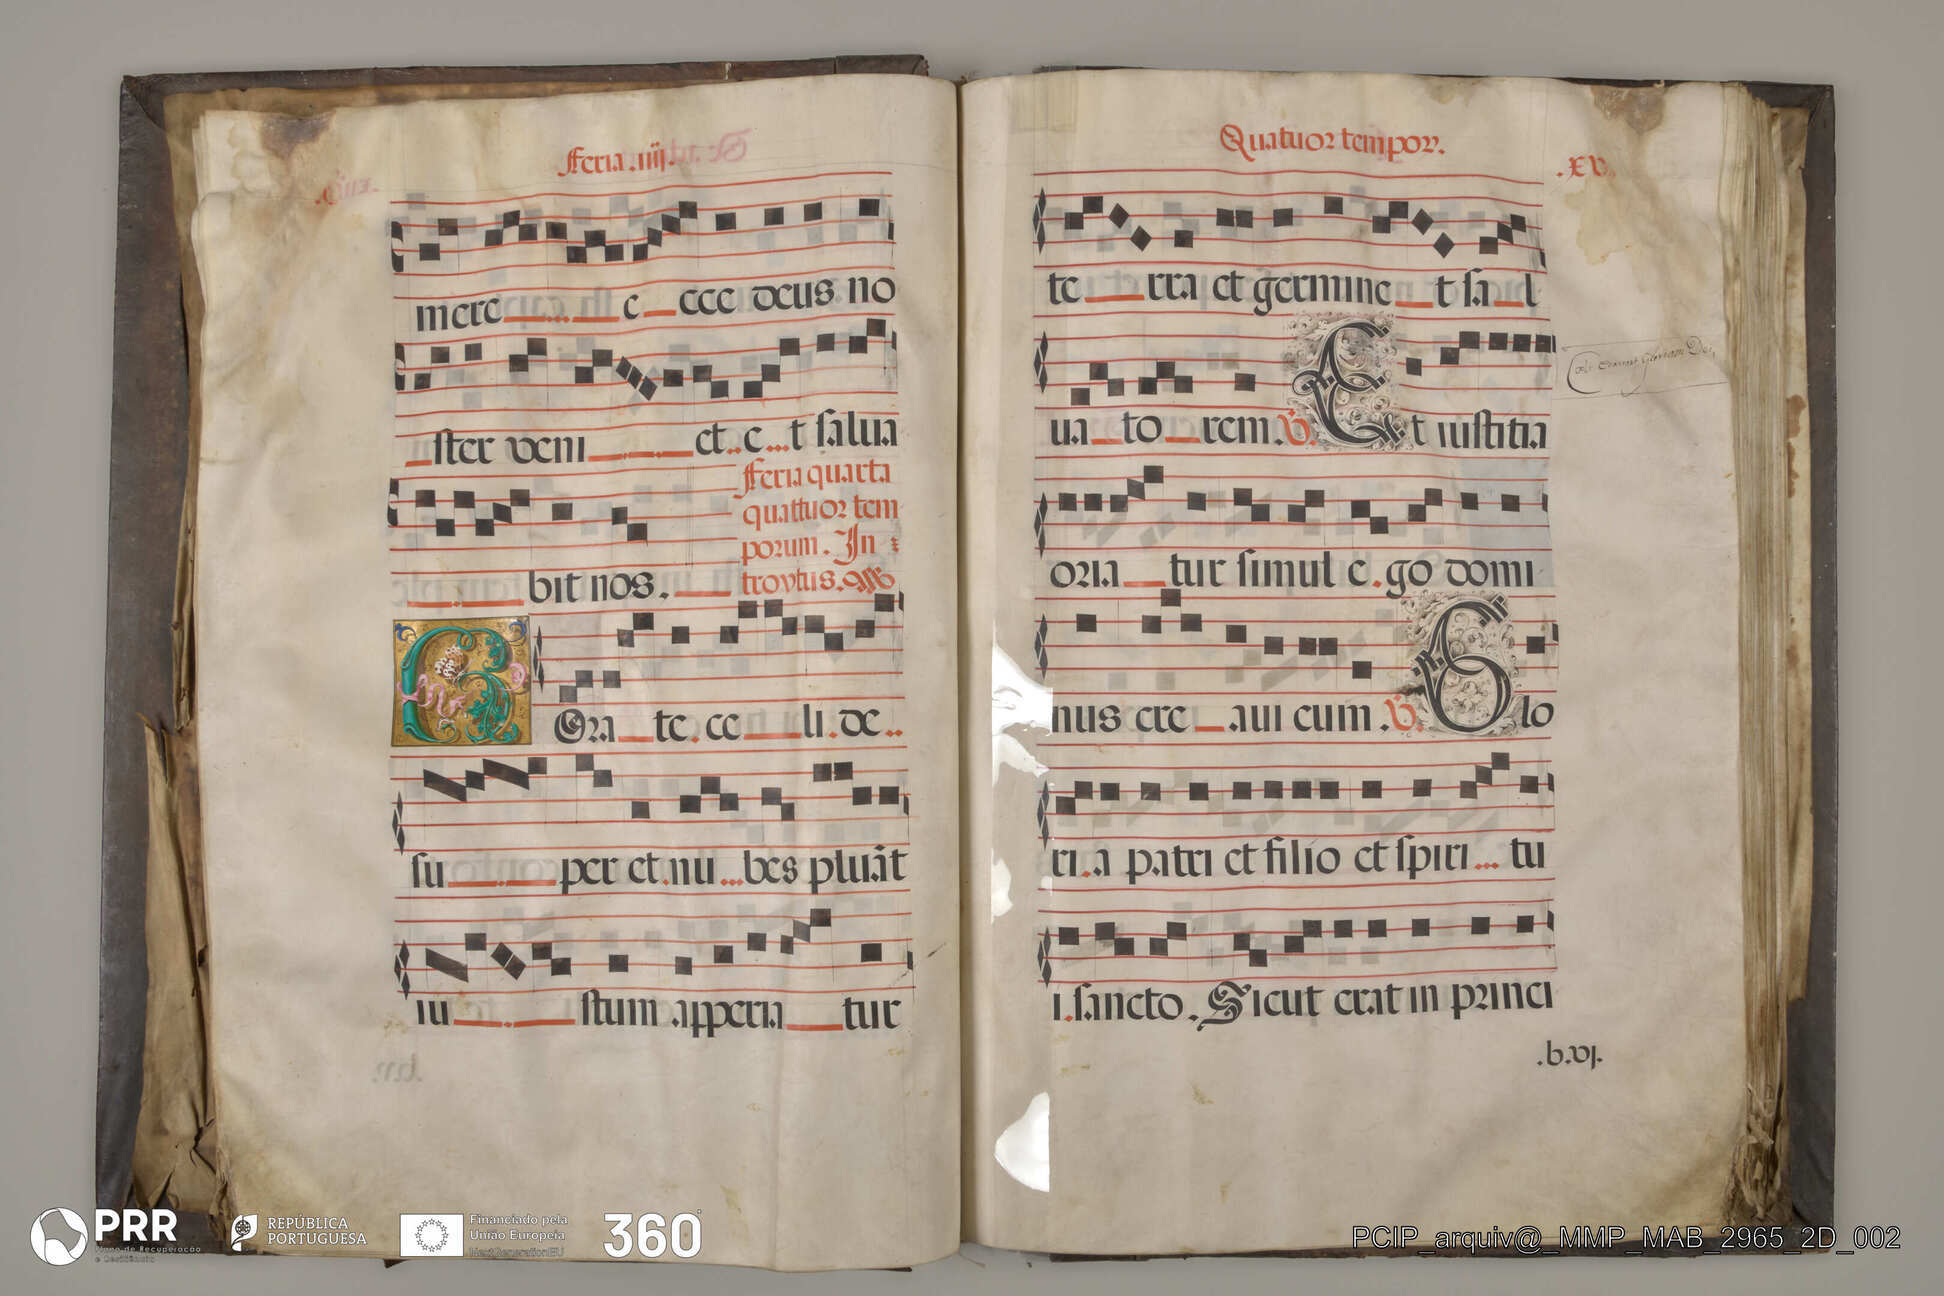 Feria .iiij.
mere e ecce deus no
ster veni et e t salua
bit nos.
Feria quarta
quattuor tem
porum. In
troytus.
R Ora te ce li de
su per et nu bes pluãt
iu stum apperia tur
Quatuor tempor.
.xv.
te rra et germine t sa l
ua to rem. V. Et iustitia
oria tur simul e go domi
nus cre aui eum. V. Glo
ri a patri et filio et spiri tu
i sancto. Sicut erat in princi
Gloriam Dei
.b.vj.
PRR
Plano de Recuperação
e Resiliência
REPÚBLICA
PORTUGUESA
Financiado pela
União Europeia
NextGenerationEU
360°
PCIP_arquiv@_MMP_MAB_2965_2D_002